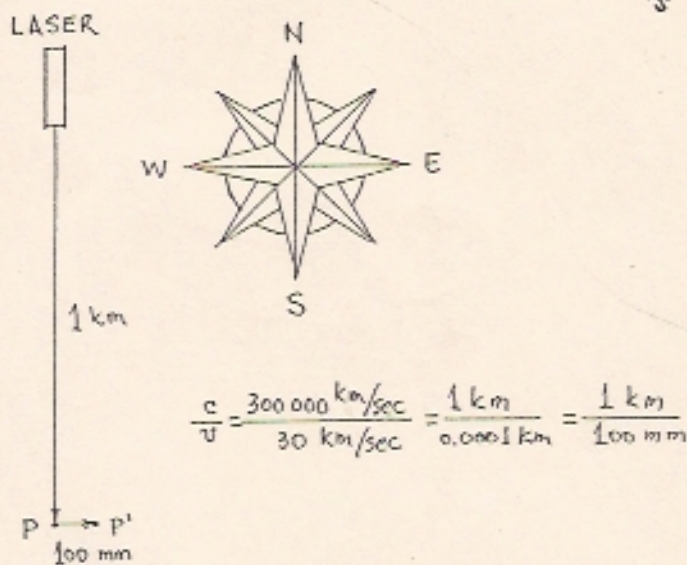 LASER
N
W
E
S
1 km
c/v = 300 000 km/sec / 30 km/sec = 1 km / 0.0001 km = 1 km / 100 mm
P P'
100 mm